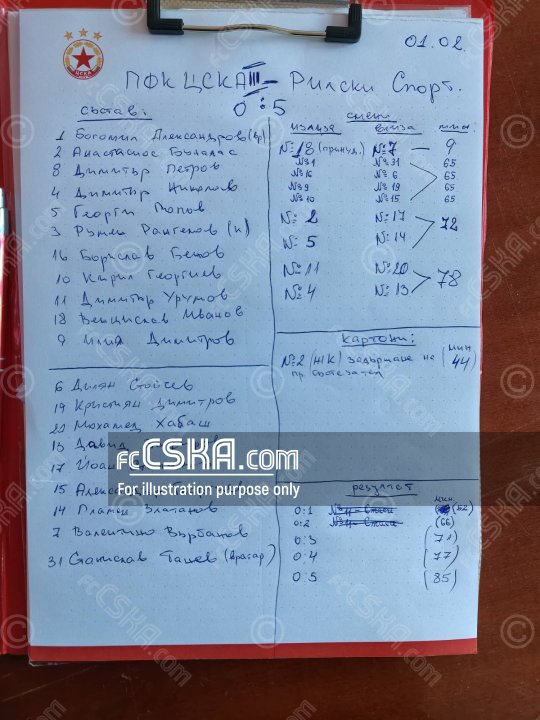 ЦСКА
01.02.
ПФК ЦСКА III - Рилски Спорт.
0:5
състави:
1 Богомил Александров (вр)
2 Анастасиос
8 Димитър Петров
4 Димитър Николов
5 Георги Попов
3 Румен Рангелов (к)
16 Борислав Бецов
10 Кирил Георгиев
11 Димитър Урумов
18 Венцислав Иванов
9 Илия Димитров
6 Дилян Стойчев
19 Кристиян Димитров
20 Мохамед Хабаш
13 Давид
17 Йоан
15 Александър
14 Пламен Златанов
7 Валентино Върбанов
31 Станислав Ташев (вратар)
смени
излиза влиза мин.
№18 (принуд.) №7 — 9
№1 №31 65
№16 №6 65
№9 №19 65
№10 №15 65
№2 №17
72
№5 №14
№11 №20
78
№4 №13
картони:
№2 (ЖК) задържане на (мин 44)
пр. състезател
резултат мин.
0:1 (62)
0:2 (66)
0:3 (71)
0:4 (77)
0:5 (85)
fcCSKA.com
For illustration purpose only